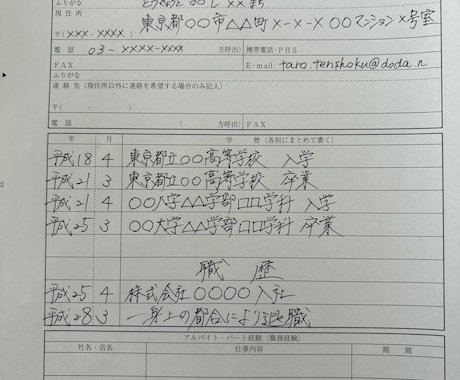 ふりがな とうきょうと〇〇し××まち
現住所
東京都〇〇市△△町×-×-× 〇〇マンション×号室
〒(×××-××××)
電話 03-××××-×××× 方呼出) 携帯電話・PHS
FAX E-mail taro.tenshoku@doda.n
ふりがな
連絡先(現住所以外に連絡を希望する場合のみ記入)
〒( - )
電話 方呼出) FAX
年 月 学 歴(各別にまとめて書く)
平成18 4 東京都立〇〇高等学校 入学
平成21 3 東京都立〇〇高等学校 卒業
平成21 4 〇〇大学△△学部口口学科 入学
平成25 3 〇〇大学△△学部口口学科 卒業
職歴
平成25 4 株式会社〇〇〇〇入社
平成28 3 一身上の都合により退職
アルバイト・パート経験(職務経験)
社名・店名 仕事内容 期間